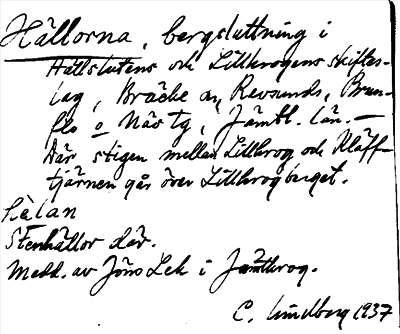 Hällorna, bergsluttning i
Hällslutens och Lillkrogens skiftes-
lag, Bräcke o, Revsunds, Brun-
flo o Näs tg, Jämtl. län. —
där stigen mellan Lillkrog och Kläff-
tjärnen går över Lillkrogberget.
hälan
Stenhällor där.
Medd. av Jöns Lek i Jämtkrog.
C. Lindberg 1937